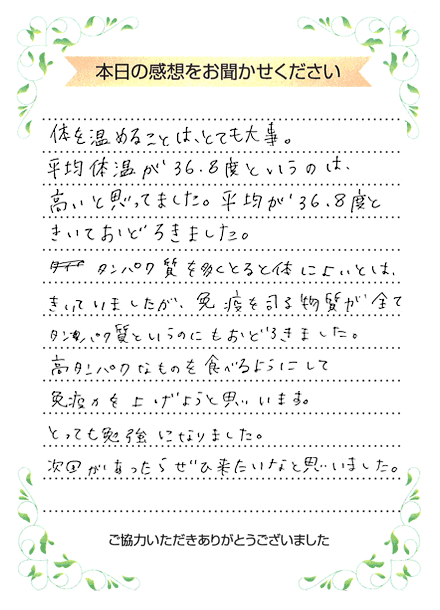 本日の感想をお聞かせください
体を温めることは、とても大事。
平均体温が36.8度というのは、
高いと思ってました。平均が36.8度と
きいておどろきました。
タンパク質を多くとると体によいとは、
きいていましたが、免疫を司る物質が全て
タンパク質というのにもおどろきました。
高タンパクなものを食べるようにして
免疫力を上げようと思います。
とっても勉強になりました。
次回があったらぜひ来たいなと思いました。
ご協力いただきありがとうございました